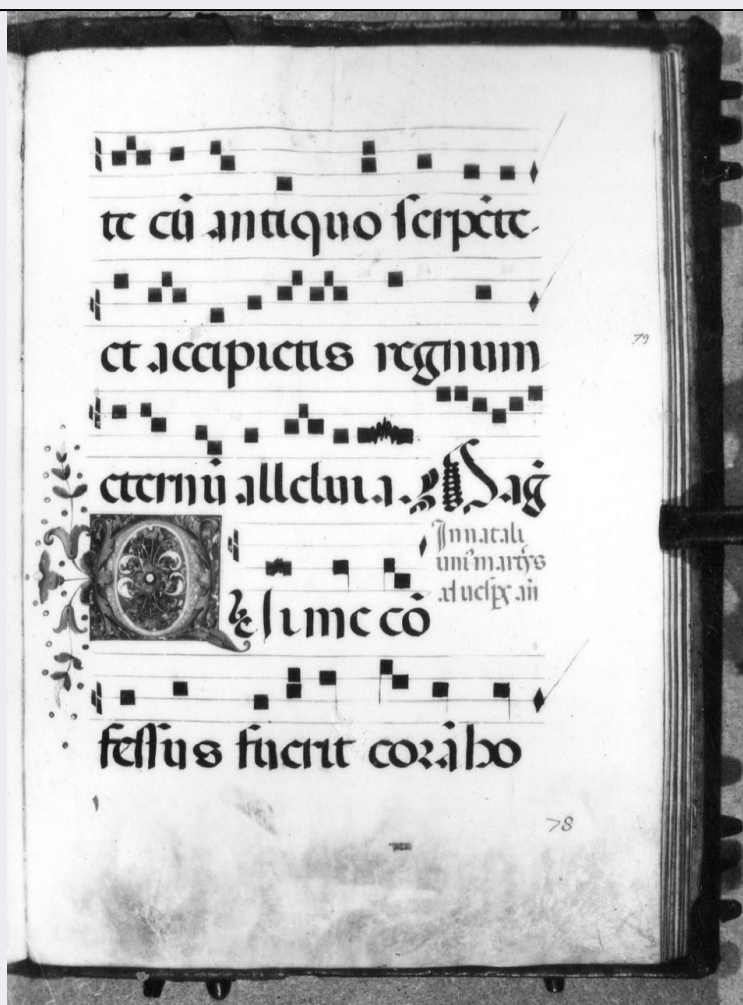 te cū antiquo serpēte
et accipietis regnum
79
eternū alleluia. Mag̃
In natali
uniꝰ martỹs
ad uesp̱ añ
Qui me cō
fessus fuerit corā ho
78